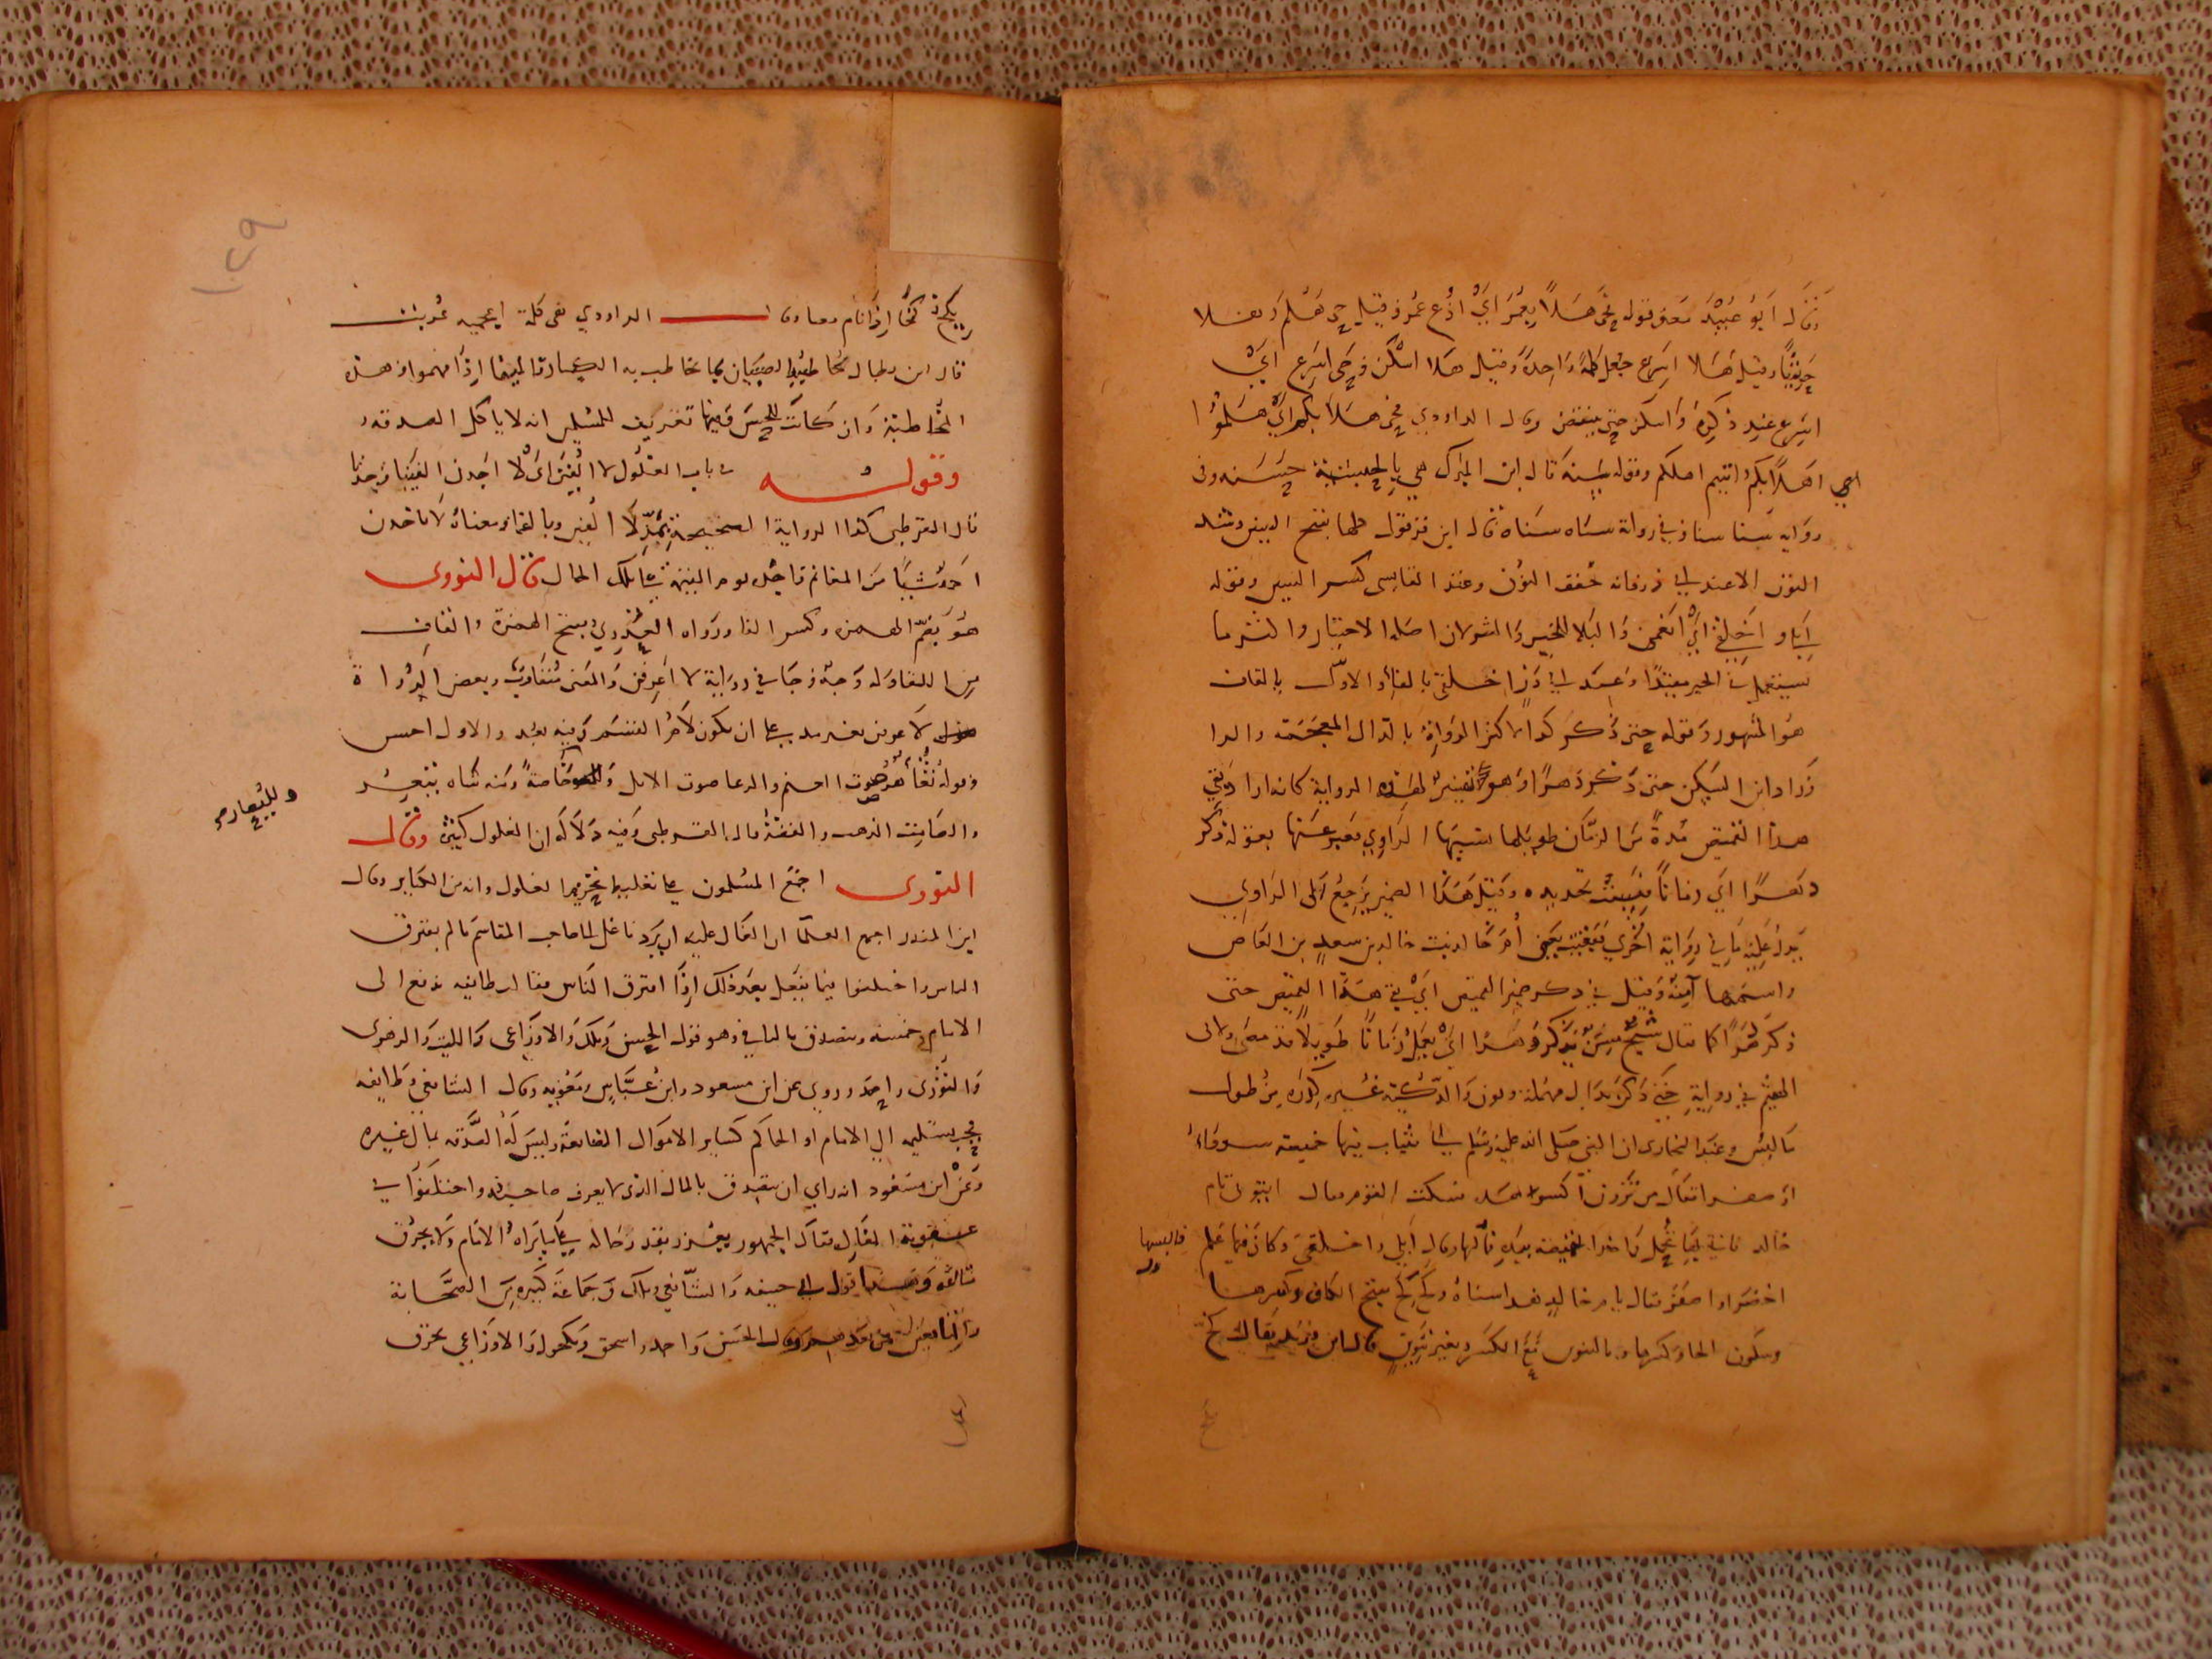 وقال ابو عبيد معنى قوله فحى هلا بعمر اي ادع عمر وقيل حى هلم وهلا
حثيثا وقيل هلا اسرع جعل كلمة واحدة وقيل هلا اسكن وحى اسرع اي
اسرع عند ذكره واسكن حتى ينقضي وقال الداودي فحى هلا بكم اي هلموا
اي اهلا بكم اتيتم اهلكم وقوله سنه قال ابن المبارك هي بالحبشية حسنه وفى
رواية سنا سنا وفي رواية سناه سناه قال ابن قرقول كلها بفتح السين وشد
النون الا عند ابي ذر فانه خفف النون وعند القابسي كسر السين وقوله
ابلي و اخلقي اي انعمي والبلا للخير والشر لان اصله الاختبار واكثر ما
يستعمل في الخير مقيدا وعند ابي ذر اخلفي بالفاء والاول بالقاف
هو المشهور وقوله حتى ذكر كذا لاكثر الرواة بالذال المعجمة والرا
وزاد ابن السكن حتى ذكر دهرا وهو تفسير لهذه الرواية كانه اراد بقي
هذا القميص مدة من الزمان طويلة نسيها الراوي فعبر عنها بقوله ذكر
دهرا اي زمانا نسيت تحديده وقيل هذا الضمير يرجع الى الراوي
يدل عليه ما في رواية اخري فبقيت يعنى ام خالد بنت خالد بن سعيد بن العاص
واسمها آمنة وقيل في ذكر ضمير القميص اي بقي هذا القميص حتى
ذكر دهرا كما يقال شيخ مسن يذكر دهرا اي يعقل زمانا طويلا قد مضى ولابى
الهيثم في رواية حتى دكن بدال مهملة ونون والدكنة غبرة كدرة من طول
ما لبس وعند البخارى ان النبي صلى الله عليه وسلم اتى بثياب فيها خميصة سوداء
او صفرا فقال من ترون اكسوا هذه فسكت القوم فقال ايتونى بام
خالد فاتي بها تحمل فاخذ الخميصة بيده فالبسها وقال ابلي واخلقي وكان فيها علم فالبسها
اخضر او اصفر فقال يا ام خالد هذا سناه وكخ كخ بفتح الكاف وكسرها
وسكون الخا وكسرها وبالتنوين مع الكسر وبغير تنوين قال ابن دريد يقال كخ
يكخ كخا اذا نام وقال الداودي هى كلمة اعجمية عربت
قال ابن بطال مخاطبة الصبيان بما تخاطب به الكبار قايمة اذا فهموا وهذه
المخاطبة وان كانت للحسن ففيها تعريف للمسلمين انه لا ياكل الصدقه
وقوله في باب الغلول لا الفين اي لا اجدن الفيتا وجدنا
قال القرطبي كذا الرواية الصحيحة بمد لا الفين وبالفا ومعناه لا ياخذن
احد شيا من المغانم فاجده يوم القيمة على تلك الحال قال النووى
هو بضم الهمزه وكسر الفا ورواه العذري بفتح الهمزة والقاف
من اللقا وله وجه وجا في رواية لا اعرفن والمعنى متقارب وبعض الرواة
يقول لاعرفن بغير مد على ان يكون لام القسم وفيه بعد والاول احسن
وقوله ثغاء هو صوت الغنم والرغا صوت الابل وثاغية تنغر
والصامت الذهب والفضة قال القرطبي وفيه دلالة ان الغلول كبيرة وقال
وللبعارم
النووى اجمع المسلمون على تغليظ تحريم الغلول وانه من الكباير وقال
ابن المنذر اجمع العلما ان الغال عليه ان يرد ما غل الى صاحب المقاسم ما لم يفترق
الناس واختلفوا فيما يفعل بعد ذلك اذا افترق الناس فقال طايفه يدفع الى
الامام خمسه ويتصدق بالباقي وهو قول الحسن وملك والاوزاعي والليث والزهرى
والثوري واحمد وروي عن ابن مسعود وابن عباس ومعويه وقال الشافعي وطايفه
يجب تسليمه الي الامام او الحاكم كساير الاموال الضايعة وليس له الصدقه بمال غيره
وعن ابن مسعود انه راي ان يتصدق بالمال الذى لا يعرف صاحبه واختلفوا في
عقوبة الغال فقال الجمهور يعزر بقدر حاله على ما يراه الامام ولا يحرق
متاعه وهذا قول ابي حنيفه والشافعي وملك وجماعة كبيره من الصحابة
والتابعين ومن بعدهم وقال الحسن واحد واسحق ومكحول والاوزاعي يحرق